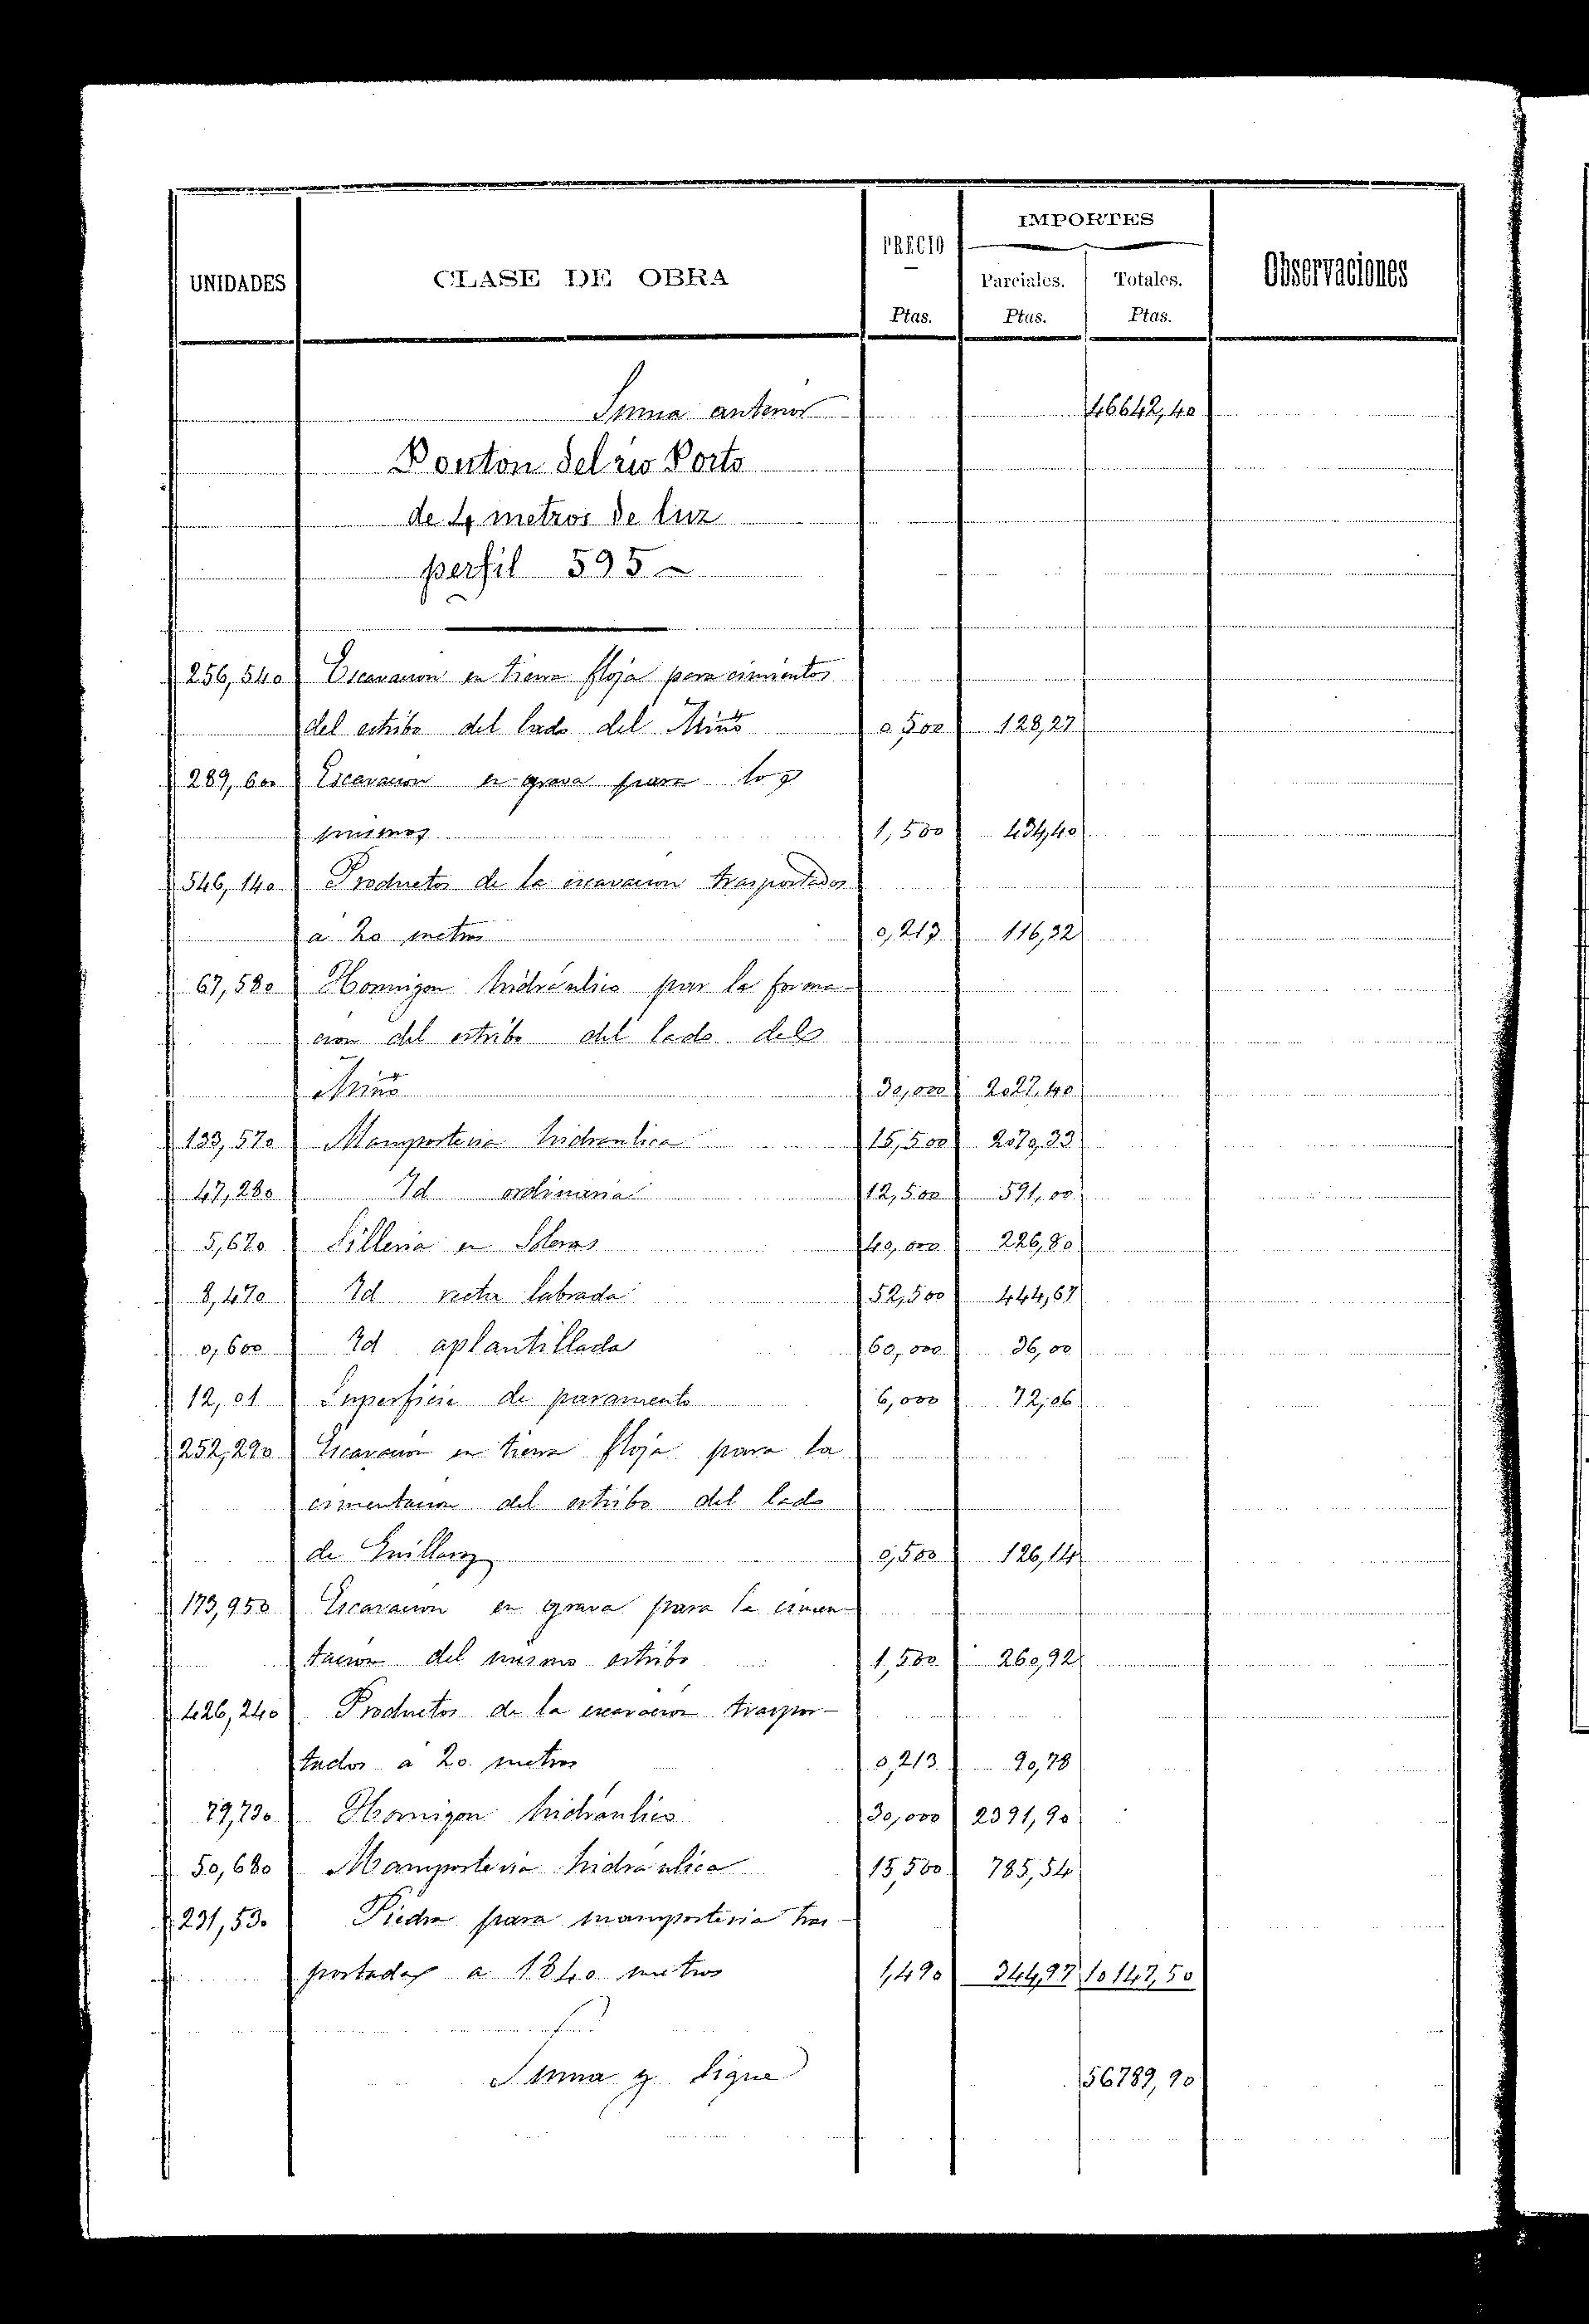 UNIDADES CLASE DE OBRA PRECIO IMPORTES Observaciones
Parciales. Totales.
Ptas. Ptas. Ptas.
Suma anterior 46642,40
Ponton del rio Porto
de 4 metros de luz
perfil 595
256,540 Escavacion en tierra floja para cimientos
del estribo del lado del Miño 0,500 128,27
289,600 Escavacion en grava para los
mismos 1,500 434,40
546,140 Productos de la escavacion trasportados
a 20 metros 0,213 116,32
67,580 Hormigon hidráulico par la forma-
cion del estribo del lado del
Miño 30,000 2027,40
133,570 Mamposteria hidraulica 15,500 2070,33
47,280 Id ordinaria 12,500 591,00
5,670 Silleria en Soleras 40,000 226,80
8,470 Id recta labrada 52,500 444,67
0,600 Id aplantillada 60,000 36,00
12,01 Superficie de paramento 6,000 72,06
252,290 Escavacion en tierra floja para la
cimentacion del estribo del lado
de Guillarey 0,500 126,14
173,950 Escavacion en grava para la cimen-
tacion del mismo estribo 1,500 260,92
426,240 Productos de la escavacion traspor-
tados a 20 metros 0,213 90,78
79,730 Hormigon hidráulico 30,000 2391,90
50,680 Mamposteria hidráulica 15,500 785,54
231,530 Piedra para mamposteria tras-
portada a 1840 metros 1,490 344,97 10147,50
Suma y sigue 56789,90